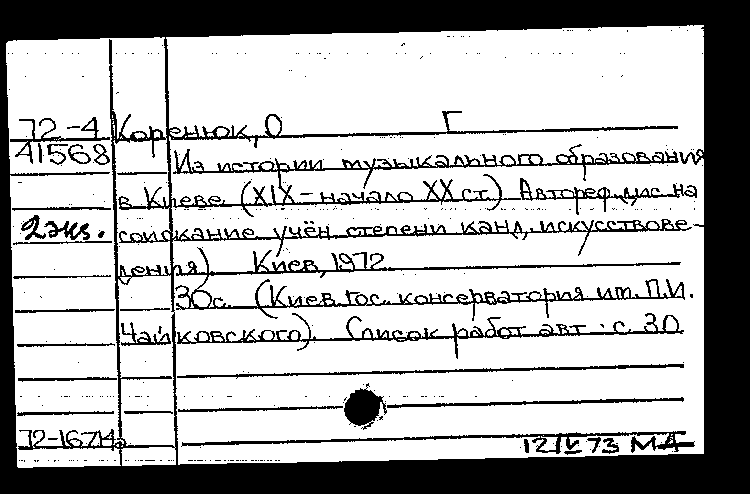 72-4 Коренюк, О Г
41568 Из истории музыкального образования
в Киеве (XIX – начало XX ст.) Автореф. дис на
2 экз. соискание учён. степени канд. искусствове-
дения). Киев, 1972.
30с. (Киев. гос. консерватория им. П.И.
Чайковского). Список работ авт : с 30
72-16714
12/V 73 МА